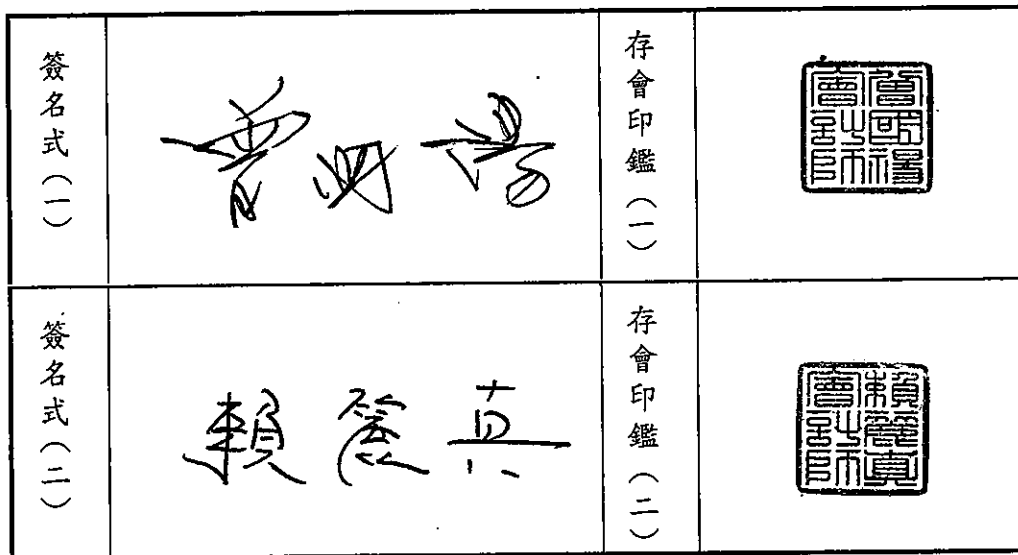 簽名式(一)
曾國禓
存會印鑑(一)
曾國禓
會計師
簽名式(二)
賴麗真
存會印鑑(二)
賴麗真
會計師